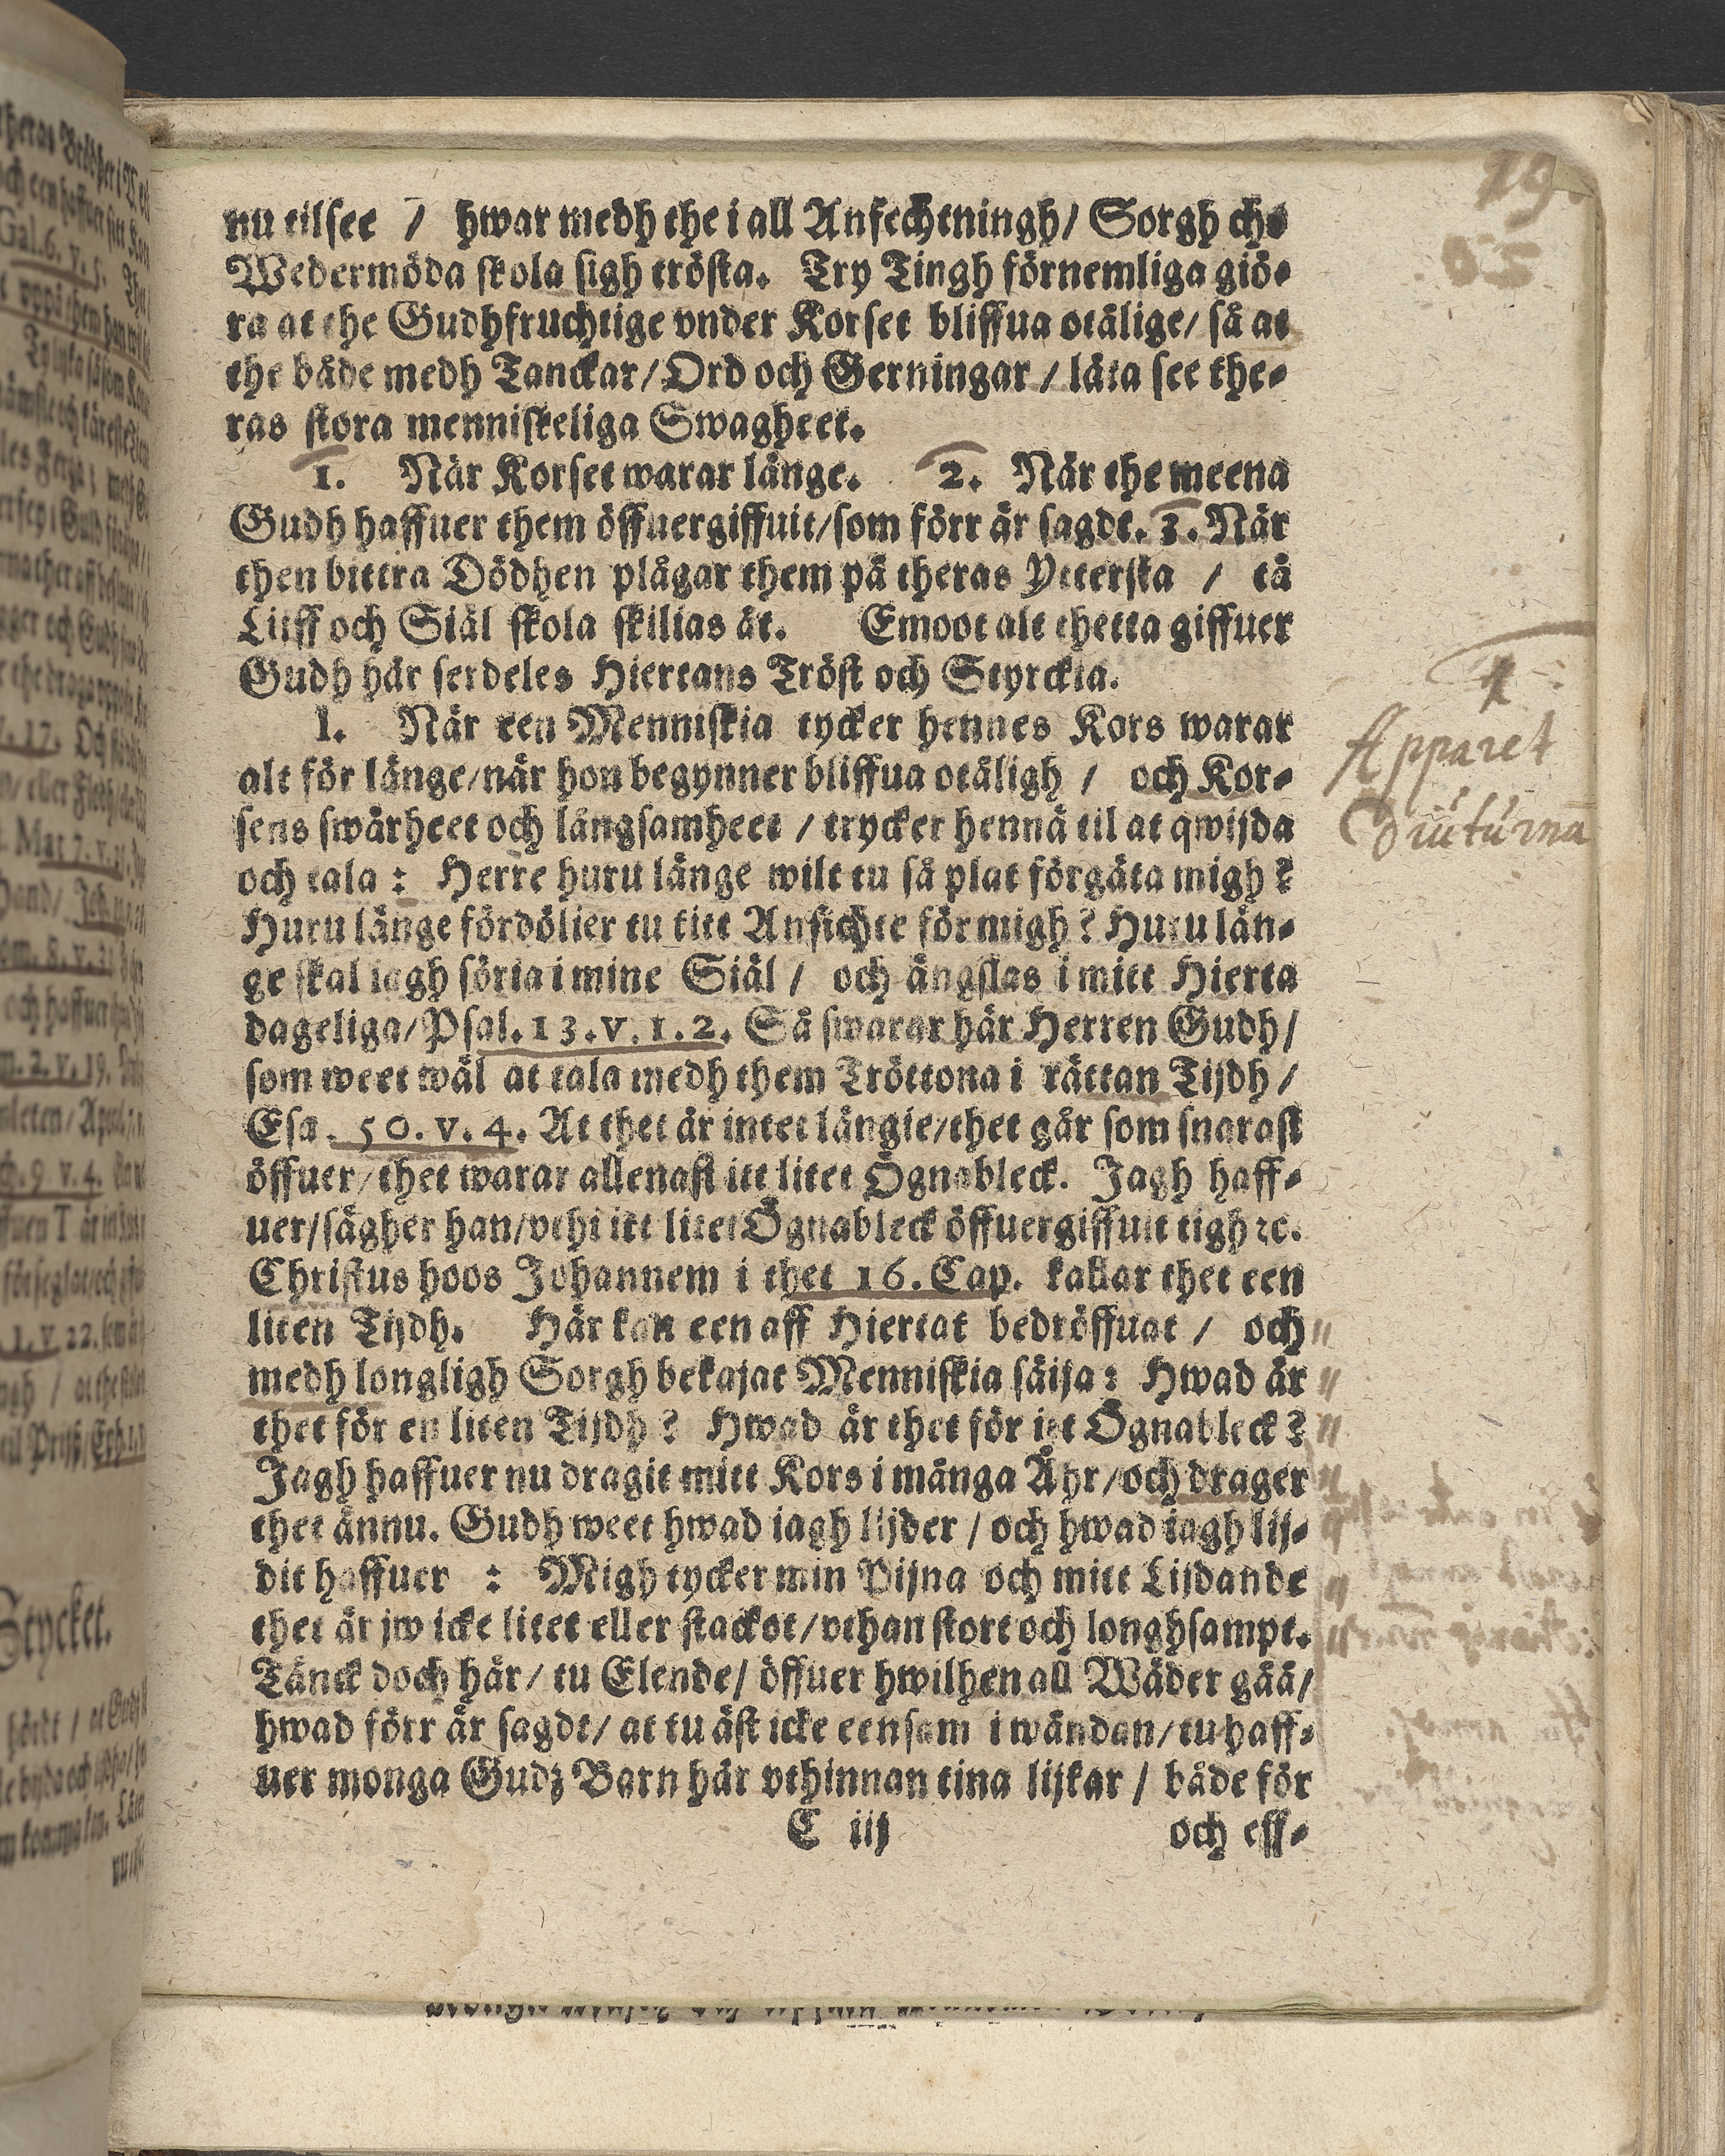 29.
nu tilsee / hwar medh the i all Anfechtningh/ Sorgh ch
Wedermöda skola sigh trösta. Try Tingh förnemliga giö-
ra at the Gudhfruchtige vnder Korset bliffua otålige/ så at
the både medh Tanckar/ Ord och Gerningar / låta see the-
ras stora menniskeliga Swagheet.
1. När Korset warar länge. 2. När the meena
Gudh haffuer them öffuergiffuit/som förr är sagdt. 3. När
then bittra Dödhen plågar them på theras Ytterska / tå
Lijff och Siäl skola skilias åt. Emoot alt thetta giffuer
Gudh här serdeles Hiertans Tröst och Styrckia.
I. När een Menniskia tycker hennes Kors warar
alt för länge/när hon begynner bliffua otåligh / och Kor-
sens swårheet och långsamheet / trycker hennä til at qwijda
och tala : Herre huru länge wilt tu så plat förgäta migh ?
Huru länge fördölier tu titt Ansichte för migh ? Huru län-
ge skal iagh söria i mine Siäl / och ängslas i mitt Hierta
dageliga/Psal. 13. v. 1. 2. Så swarar här Herren Gudh/
som weet wäl at tala medh them Tröttona i rättan Tijdh /
Esa. 50. v. 4. At thet är intet längie/thet går som snarast
öffuer/ thet warar allenast itt litet Ögnableck. Jagh haff-
uer/sägher han/vthi itt litet Ögnableck öffuergiffuit tigh ꝛc.
Christus hoos Johannem i thet 16. Cap. kallar thet een
liten Tijdh. Här kan een aff Hiertat bedröffuat / och
medh longligh Sorgh bekajat Menniskia säija : Hwad är
thet för en liten Tijdh ? Hwad är thet för itt Ögnableck ?
Jagh haffuer nu dragit mitt Kors i många Åhr/och drager
thet ännu. Gudh weet hwad iagh lijder / och hwad iagh lij-
dit haffuer : Migh tycker min Pijna och mitt Lijdande
thet är jw icke litet eller stackot/vthan stort och longhsampt.
Tänck doch här/ tu Elende/ öffuer hwilhen all Wäder gåå/
hwad förr är sagdt/ at tu äst icke eensam i wåndan/ tu haff-
uer monga Gudz Barn här vthinnan tina lijkar / både för
C iij och eff-
1
Apparet
Diuturna